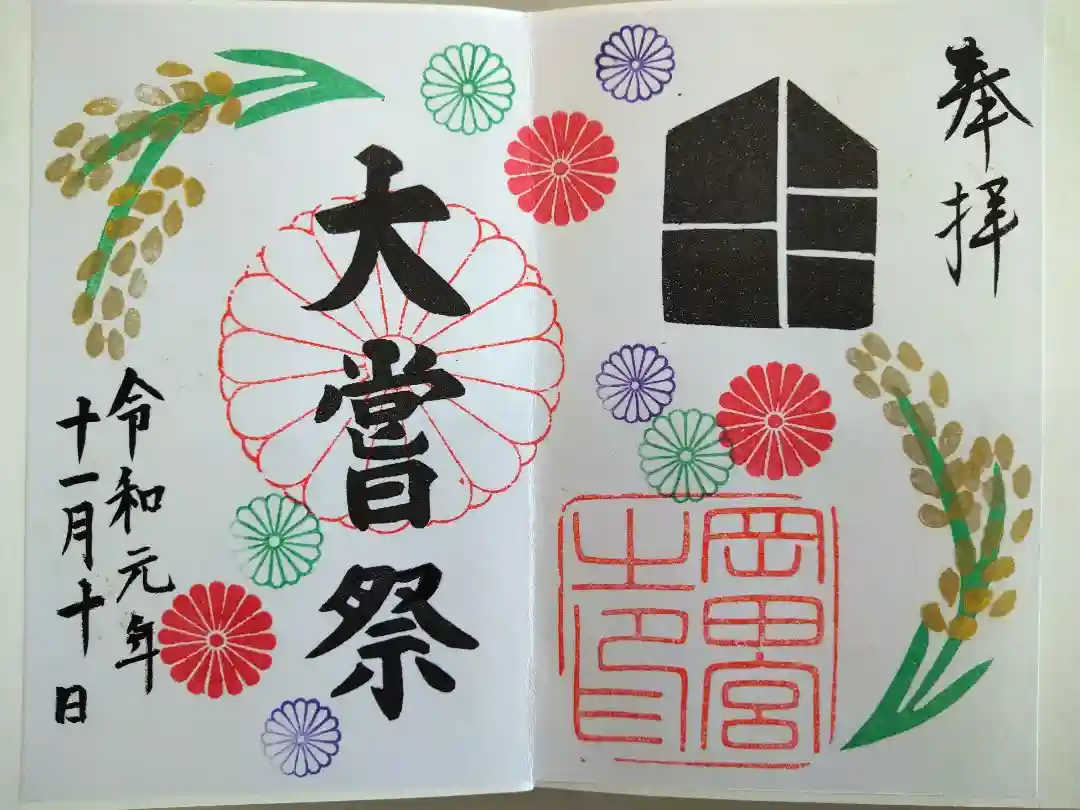 奉拝
岡田宮
之印
大嘗祭
令和元年
十一月十十日